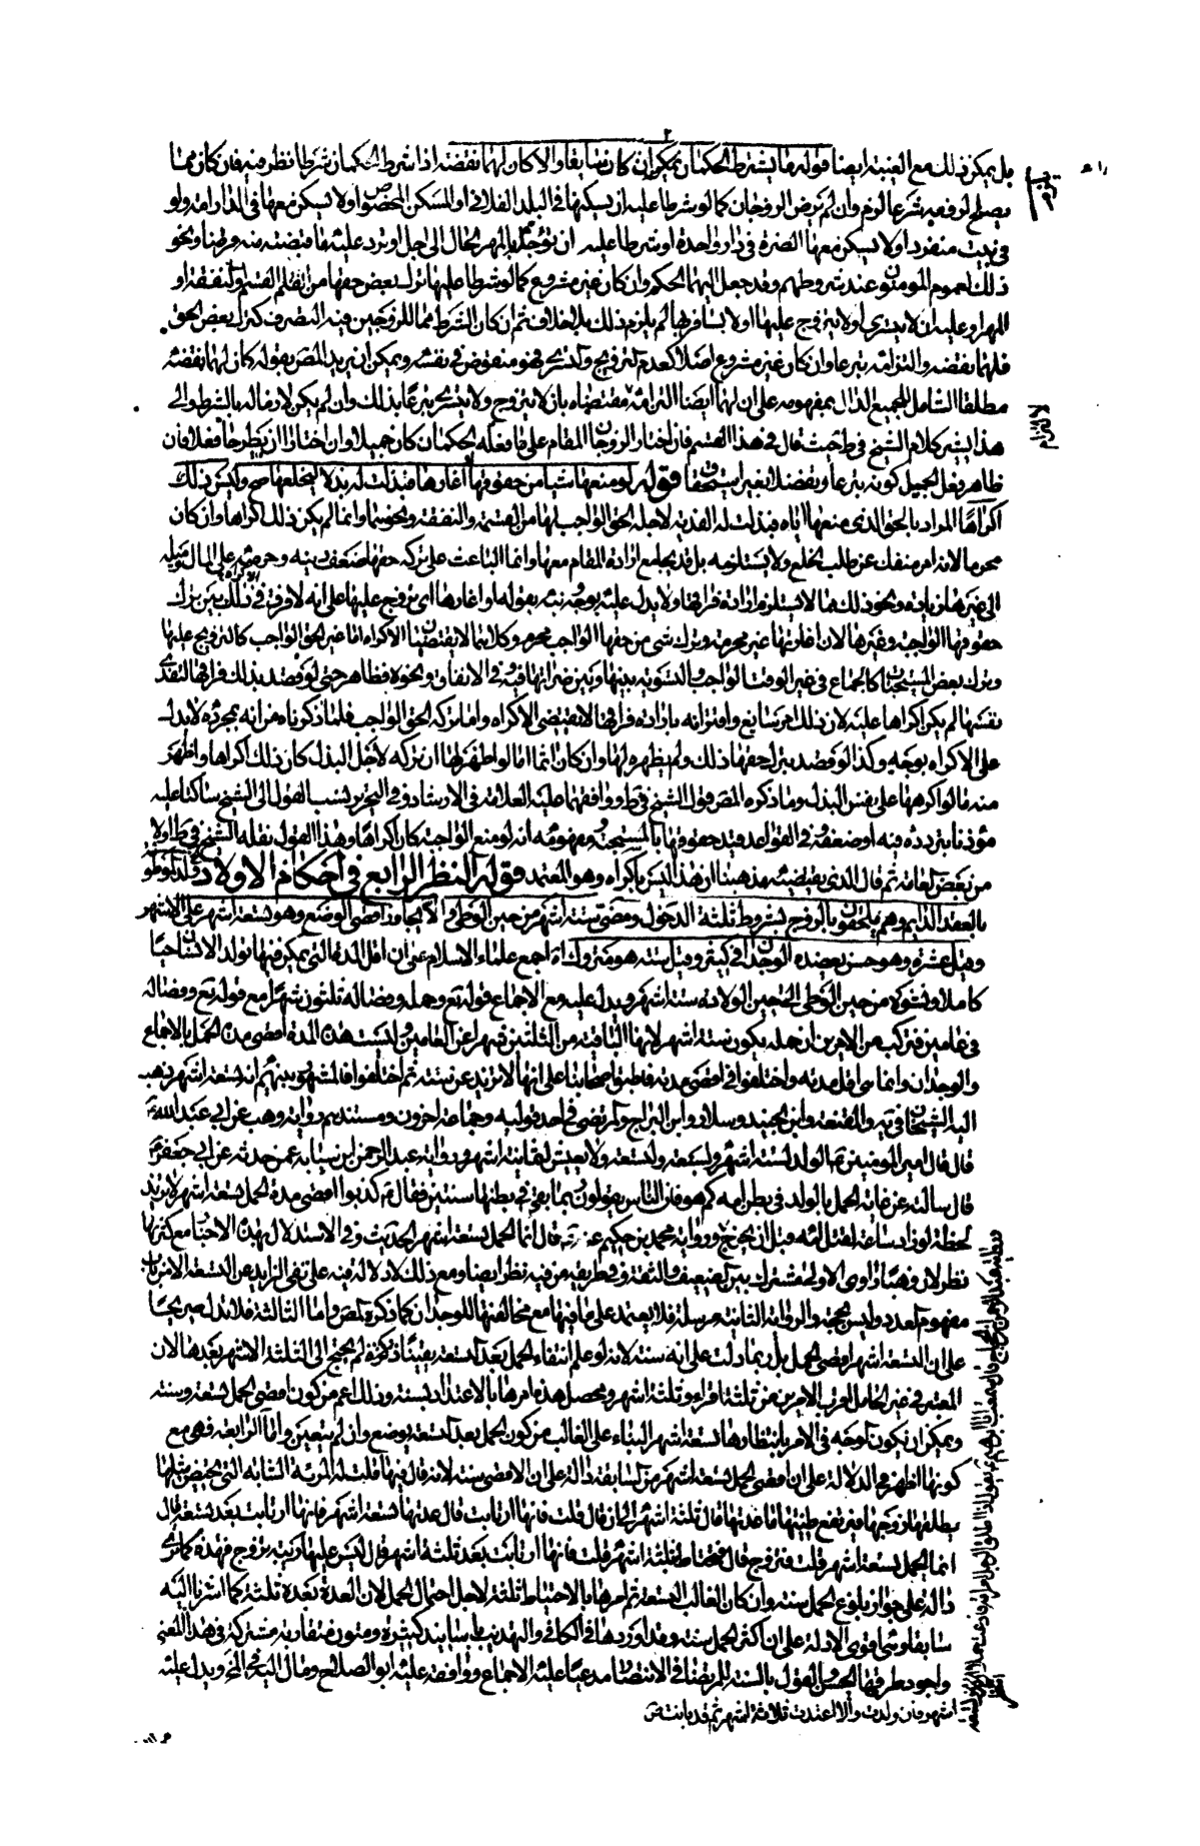 بل يمكن ذلك مع الغيبة ايضا قوله ما يشترطه الحكمان يمكن ان كان سايغا والا كان لهما نقضه اذا شرط الحكمان شرطا نظر فيه فان كان مما
يصلح لوقوعه شرعا لزم وان لم يرض الزوجان كما لو شرطا عليه ان يسكنها في البلد الفلاني او المسكن المخصوص او لا يسكن معها في الدار امه ولو
في بيت منفرد او لا يسكن معها الضرة في دار واحدة او شرطا عليها ان تؤجله بالمهر الحال الى اجل او ترد عليه ما قبضته منه قرضا ونحو
ذلك لعموم المؤمنون عند شروطهم وقد جعل اليهما الحكم وان كان غير مشروع كما لو شرطا عليها ترك بعض حقها من القسم والنفقة او
المهر او عليه ان لا يتسرى او لا يتزوج عليها او لا يسافر بها لم يلزم ذلك بلا خلاف ثم ان كان الشرط مما للزوجين فيه التصرف كترك بعض الحق
فلهما نقضه والتزامه تبرعا وان كان غير مشروع اصلا كعدم التزويج والتسري فهو منقوض في نفسه ويمكن ان يريد المص بقوله كان لهما نقضه
مطلقا الشامل للجميع الدال بمفهومه على ان لهما ايضا التزامه مقتضاه بان لا يتزوج ولا يتسرى تبرعا بذلك وان لم يكن لازما له بالشرط والى
هذا يشير كلام الشيخ في ط حيث قال في هذا القسم فان اختار الزوجان المقام على ما فعله الحكمان كان جميلا وان اختارا ان يطرحا فعلا فان
ظاهر نقل الجميل كونه تبرعا وتفضلا بغير استحقاق قوله لو منعها شيئا من حقوقها او اغارها فبذلت له بذلا ليخلعها صح وليس ذلك
اكراها المراد بالحق الذي منعها اياه فبذلت له الفدية لاجله الحق الواجب لها من القسمة والنفقة ونحوهما وانما لم يكن ذلك اكراها وان كان
محرما لانه امر منفك عن طلب الخلع ولا يستلزمه بل قد يجامع ارادة المقام معها وانما الباعث على تركه حقها ضعف دينه وحرصه على المال وميله
الى غيرها زيادة ونحو ذلك مما لا يستلزم ارادة فراقها ولا يدل عليه بوجه نبه بقوله او اغارها اي تزوج عليها على انه لا فرق في ذلك بين ترك
حقوقها الواجبة وغيرها لان اغارتها غير محرمة وترك شيء من حقها الواجب محرم وكلاهما لا يقتضيان الاكراه اما غير الحق الواجب كالتزويج عليها
وترك بعض المستحبات كالجماع في غير الوقت الواجب والتسوية بينها وبين ضراتها فيه وفي الانفاق ونحوه فظاهر حتى لو قصد بذلك فراقها لتفدي
نفسها لم يكن اكراها عليه لان ذلك امر سايغ واقترانه بارادة فراقها لا يقتضي الاكراه واما تركه الحق الواجب فلما ذكرناه من انه بمجرده لا يدل
على الاكراه بوجه وكذا لو قصد بترك حقها ذلك ولم يظهره لها وان كان اثما اما لو اظهر لها ان تركه لاجل البذل كان ذلك اكراها واظهر
منه ما لو اكرهها على نفس البذل وما ذكره المص قول الشيخ في ط ووافقهما عليه العلامة في الارشاد وفي التحرير نسب القول الى الشيخ ساكتا عليه
مؤذنا بتردده فيه او ضعفه وفي القواعد قيد حقوقها بالمستحبة ومفهومه انه لو منع الواجبة كان اكراها وهذا القول نقله الشيخ في ط اولا
من بعض العامة ثم قال الذي يقتضيه مذهبنا ان هذا ليس باكراه وهو المعتمد قوله النظر الرابع في احكام الاولاد ولد الموطوءة
بالعقد الدايم وهم يلحقون بالزوج بشروط ثلثة الدخول ومضي ستة اشهر من حين الوطي والا يتجاوز اقصى الوضع وهو تسعة اشهر على الاشهر
وقيل عشرة وهو حسن يعضده الوجدان في كثير وقيل سنة وهو متروك اه اجمع علماء الاسلام على ان اقل المدة التي يمكن فيها تولد الانسان حيا
كاملا ونشوه من حين الوطي الى حين الولادة ستة اشهر ويدل عليه مع الاجماع قوله تع وحمله وفصاله ثلثون شهرا مع قوله تع وفصاله
في عامين فتركب من الامرين ان حمله يكون ستة اشهر لانها الباقية من الثلثين شهرا عن العامين وليست هذه المدة اقصى مدة الحمل بالاجماع
والوجدان وانما هي اقل مدته واختلفوا في اقصى مدته فاطبق اصحابنا على انها لا تزيد عن سنة ثم اختلفوا فالمشهور بينهم انه تسعة اشهر ذهب
اليه الشيخان في يه والمقنعة وابن الجنيد وسلار وابن البراج والمرتضى في احد قوليه وجماعة اخرون ومستندهم رواية وهب عن ابي عبد الله ع
قال قال امير المؤمنين ع الولد لستة اشهر ولسبعة ولتسعة ولا يعيش لثمانية اشهر ورواية عبد الرحمن ابن سيابة عمن حدثه عن ابي جعفر ع
قال سالته عن غاية الحمل بالولد في بطن امه كم هو فان الناس يقولون ربما بقي في بطنها سنتين فقال ع كذبوا اقصى مدة الحمل تسعة اشهر لا يزيد
لحظة لو زاد ساعة لقتل امه قبل ان يخرج ورواية محمد بن حكيم عنه ع قال انما الحمل تسعة اشهر الحديث وفي الاستدلال بهذه الاخبار مع كثرتها
نظر لان وهبا راوي الاولى مشترك بين الضعيف والثقة وفي طريقه من فيه نظر ايضا ومع ذلك لا دلالة فيه على نفي الزايد عن التسعة الا من باب
مفهوم العدد وليس بحجة والرواية الثانية مرسلة فلا يعتمد على ما فيها مع مخالفتها للوجدان كما ذكره المص واما الثالثة فلا تدل صريحا
على ان التسعة اشهر اقصى الحمل بل ربما دلت على انه سنة لانه لو علم انتفاء الحمل بعد التسعة يقينا ذكره لم يحتج الى الثلثة الاشهر بعدها لان
المعتبر في غير الحامل اقرب الامرين من ثلثة اقراء وثلثة اشهر ومحصل هذه امرها بالاعتداد بسنة وذلك اعم من كون اقصى الحمل تسعة وسنة
ويمكن ان يكون الوجه في الامر بانتظارها تسعة اشهر البناء على الغالب من كون الحمل بعد التسعة يوضع وان لم يتعين واما الرابعة فهي مع
كونها اظهر في الدلالة على ان اقصى الحمل تسعة اشهر من السابقة دالة على ان الاقصى سنة لانه قال فيها قلت له المرئة الشابة التي يحيض مثلها
يطلقها زوجها فيرتفع طمثها ما عدتها قال ثلثة اشهر الى ان قال قلت فانها ارتابت قال عدتها تسعة اشهر قلت فانها ارتابت بعد تسعة قال
انما الحمل تسعة اشهر قلت فتزوج قال تحتاط بثلثة اشهر قلت فانها ارتابت بعد ثلثة اشهر قال ليس عليها ريبة تزوج فهذه كما ترى
دالة على جواز بلوغ الحمل سنة وان كان الغالب التسعة ثم امرها بالاحتياط ثلثة لاجل احتمال الحمل لان العدة بعده ثلثة كما اشرنا اليه
سابقا وهي اقوى الادلة على ان اكثر الحمل سنة وقد اوردها في الكافي والتهذيب باسانيد كثيرة ومتون متقاربة مشتركة في هذا المعنى
واجود طرقها الحسن والقول بالسنة للمرتضى في الانتصار مدعيا عليه الاجماع ووافقه عليه ابو الصلاح ومال اليه في المخ ويدل عليه
اشهر فان ولدت والا اعتدت ثلاثة اشهر ثم قد بانت منه